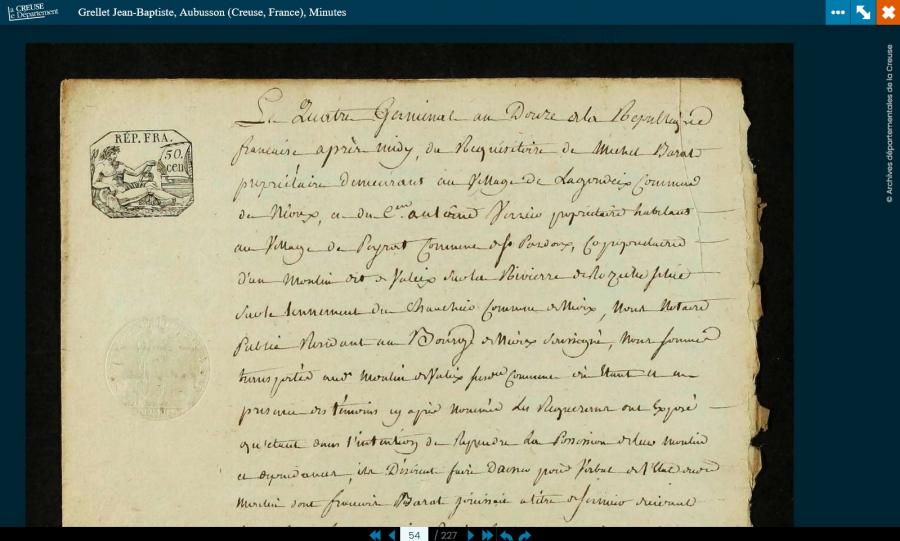 la CREUSE
le Département
Grellet Jean-Baptiste, Aubusson (Creuse, France), Minutes
© Archives départementales de la Creuse
RÉP. FRA.
50.
cen
Le Quatre Germinal an Douze de la République
francaise après midy, du Requisitoire de Michel Barat
propriétaire demeurant au Village de Lagoudeix Commune
de Nioux, et du Cen antoine Verrier propriétaire habitant
au Village de Peyrat Commune de St Pardoux, Copropriétaire
d'un Moulin dit de Valeix sur la Rivierre de Rozeille situé
sur le tennement du Commune de Nioux, Nous Notaire
Public Résidant au Bourg de Nioux soussigné, Nous sommes
transportés audt Moulin de Valeix susdte Commune où étant et en
présence des témoins cy après nommés Les Requerants ont Exposé
qu'étant dans l'intention de Reprendre La Possession de leur Moulin
et dépendances, ils Désirent faire Dresser procès verbal de l'Etat dudt
Moulin dont francois Barat jouissait à titre de fermier suivant
54 / 227